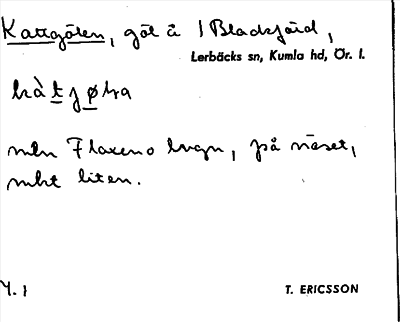 Kattgölen, göl å 1 Bladsjöid,
Lerbäcks sn, Kumla hd, Ör. l.
kàtjøɫra
mln Flaxeno kvarn, på näset,
mkt liten.
Y. 1
T. ERICSSON